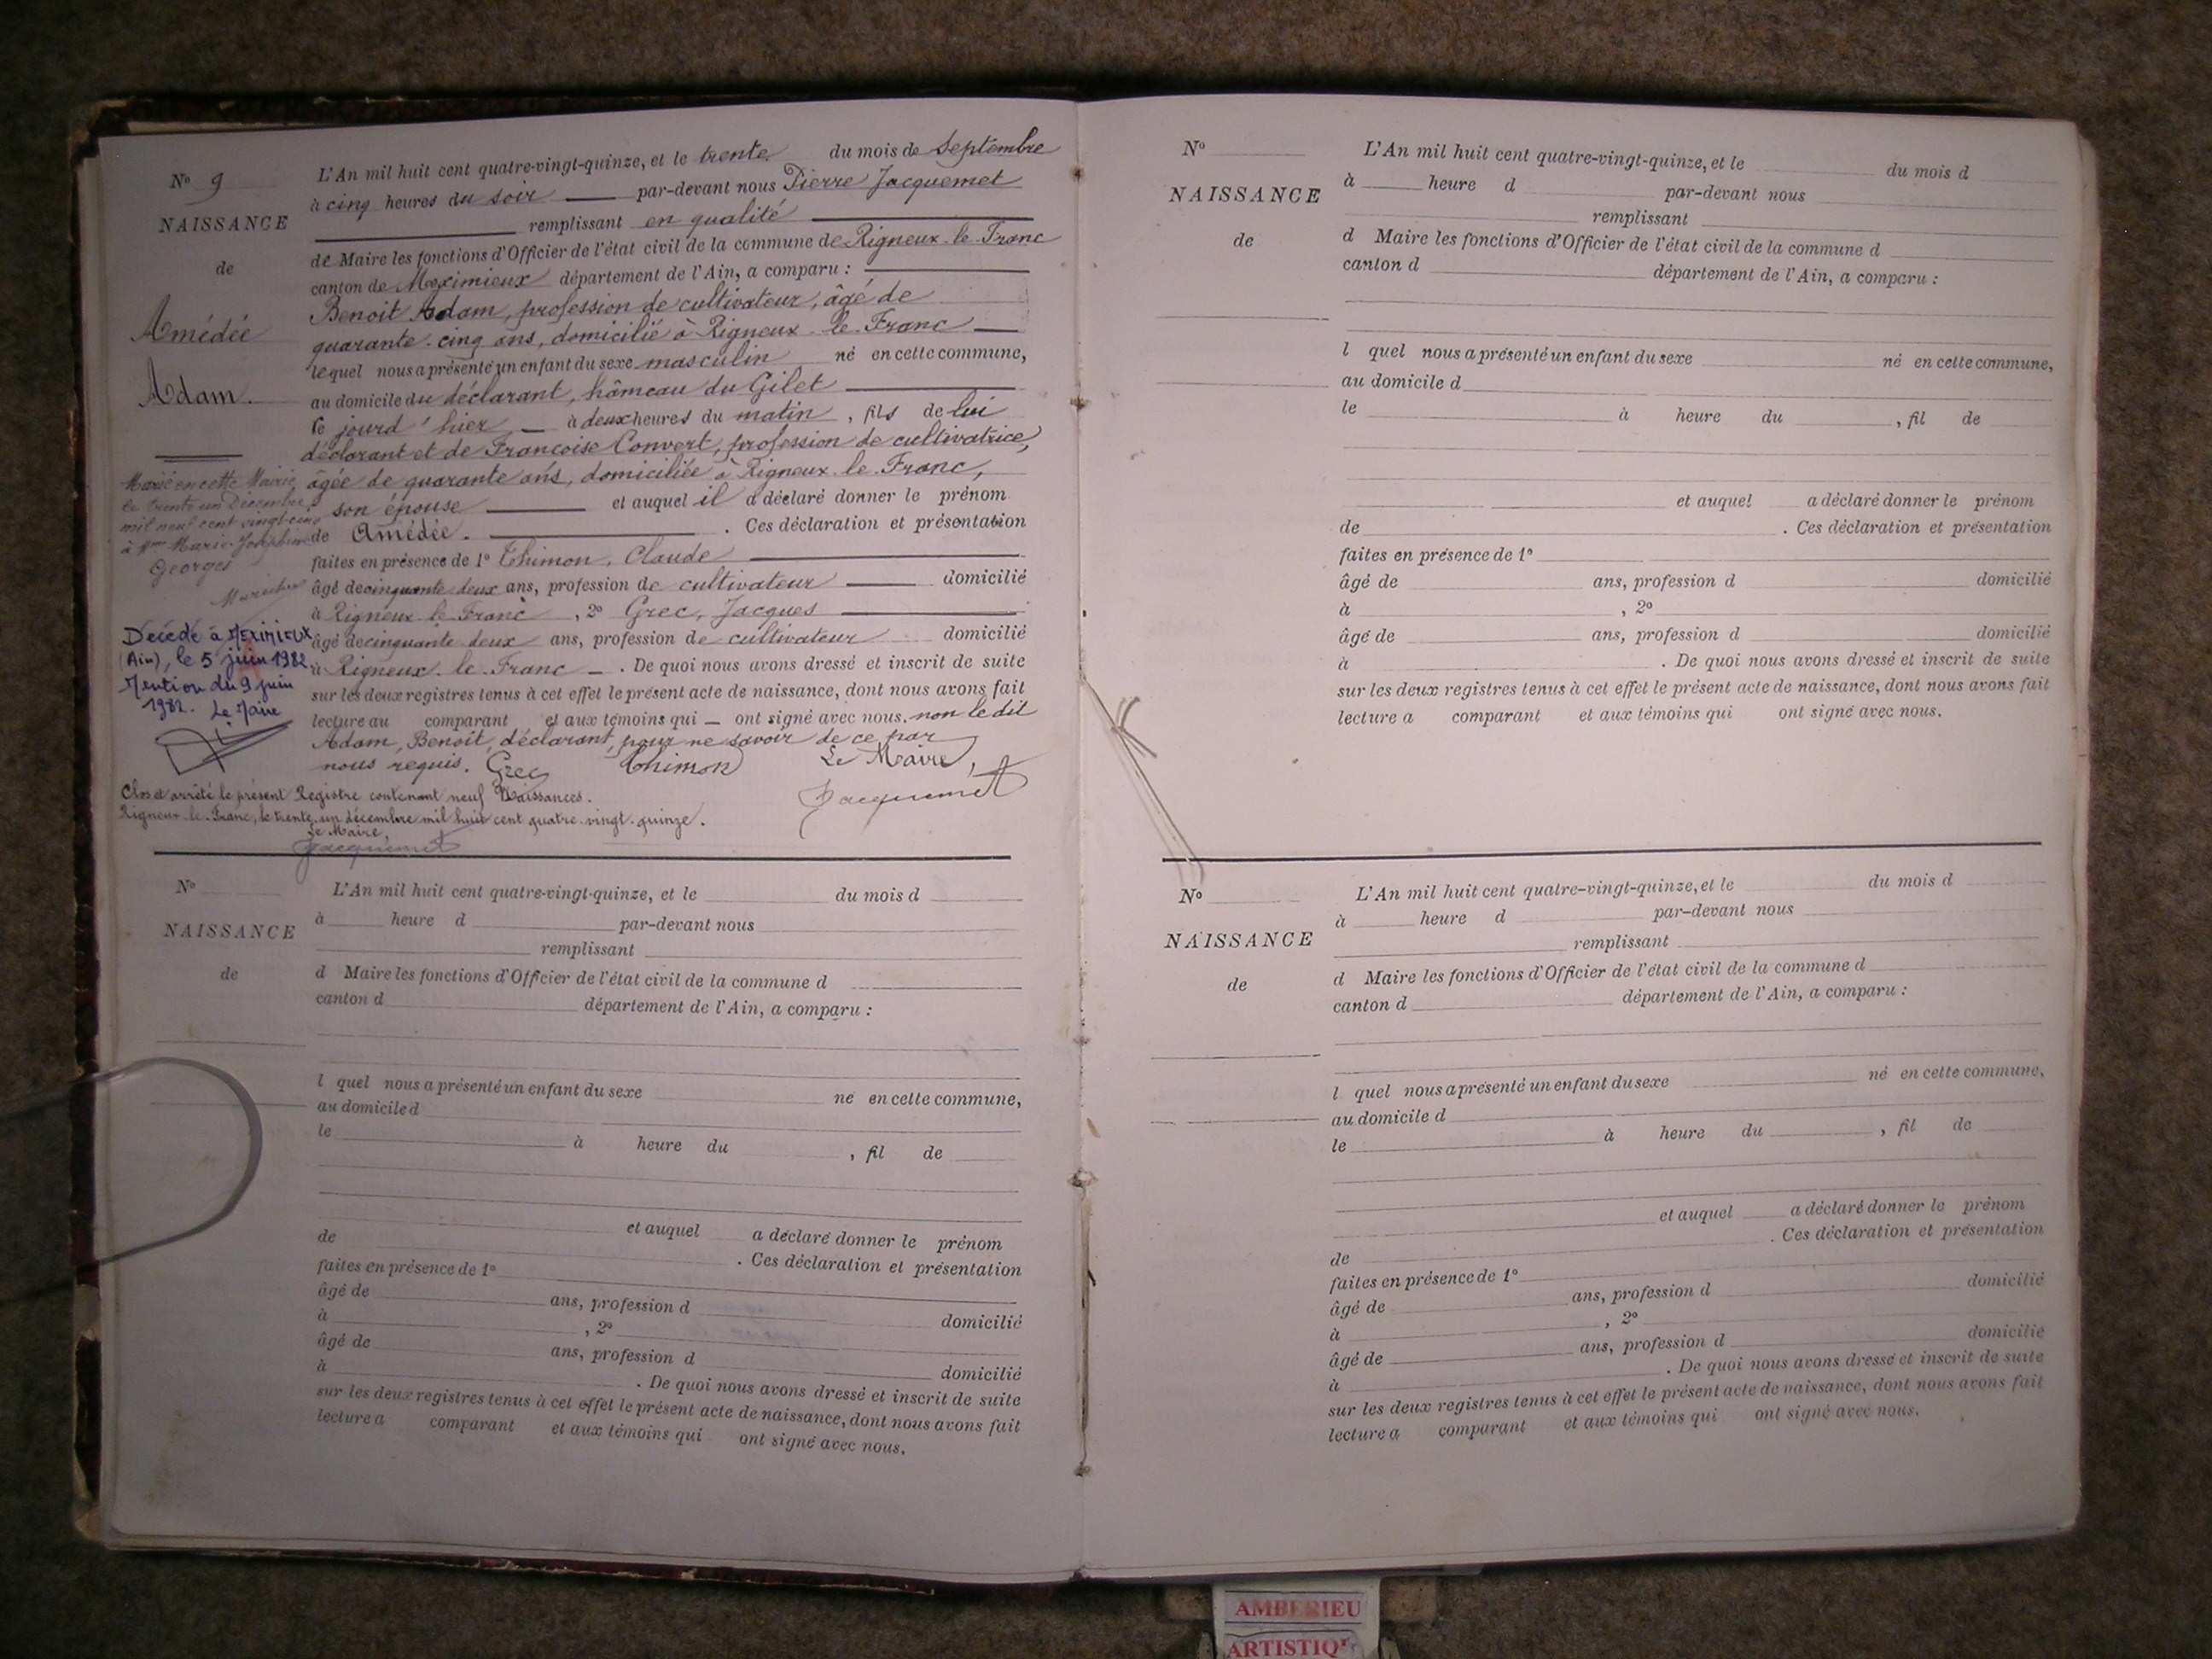 N° 9
NAISSANCE
de
Amédée
Adam.
L'An mil huit cent quatre-vingt-quinze, et le trente du mois de Septembre
à cinq heures du soir par-devant nous Pierre Jacquemet
remplissant en qualité
de Maire les fonctions d'Officier de l'état civil de la commune de Rigneux-le-Franc
canton de Meximieux département de l'Ain, a comparu :
Benoit Adam, profession de cultivateur, âgé de
quarante-cinq ans, domicilié à Rigneux-le-Franc
lequel nous a présenté un enfant du sexe masculin né en cette commune,
au domicile du déclarant, hâmeau du Gilet
le jourd'hier, à deux heures du matin, fils de lui
déclarant et de Francoise Convert, profession de cultivatrice,
âgée de quarante ans, domiciliée à Rigneux-le-Franc,
son épouse et auquel il a déclaré donner le prénom
de Amédée. Ces déclaration et présentation
faites en présence de 1° Thimon, Claude
âgé de cinquante deux ans, profession de cultivateur domicilié
à Rigneux le Franc, 2° Grec, Jacques
âgé de cinquante deux ans, profession de cultivateur domicilié
à Rigneux-le-Franc. De quoi nous avons dressé et inscrit de suite
sur les deux registres tenus à cet effet le présent acte de naissance, dont nous avons fait
lecture au comparant et aux témoins qui ont signé avec nous. non le dit
Adam, Benoit, déclarant, pour ne savoir de ce par
nous requis. Grec Thimon Le Maire,
Jacquemet
Marié en cette Mairie
le trente un Décembre
mil neuf cent vingt-cinq
à Mme Marie-Joséphine
Georges
Décédé à MEXIMIEUX
(Ain), le 5 juin 1982
Mention du 9 juin
1982. Le Maire
Clos et arrêté le présent Registre contenant neuf Naissances.
Rigneux-le-Franc, le trente-un décembre mil huit cent quatre-vingt-quinze.
Le Maire,
Jacquemet
N°
NAISSANCE
de
L'An mil huit cent quatre-vingt-quinze, et le du mois d
à heure d par-devant nous
remplissant
d Maire les fonctions d'Officier de l'état civil de la commune d
canton d département de l'Ain, a comparu :
l quel nous a présenté un enfant du sexe né en cette commune,
au domicile d
le à heure du , fil de
et auquel a déclaré donner le prénom
de . Ces déclaration et présentation
faites en présence de 1°
âgé de ans, profession d domicilié
à , 2°
âgé de ans, profession d domicilié
à . De quoi nous avons dressé et inscrit de suite
sur les deux registres tenus à cet effet le présent acte de naissance, dont nous avons fait
lecture a comparant et aux témoins qui ont signé avec nous.
N°
NAISSANCE
de
L'An mil huit cent quatre-vingt-quinze, et le du mois d
à heure d par-devant nous
remplissant
d Maire les fonctions d'Officier de l'état civil de la commune d
canton d département de l'Ain, a comparu :
l quel nous a présenté un enfant du sexe né en cette commune,
au domicile d
le à heure du , fil de
et auquel a déclaré donner le prénom
de . Ces déclaration et présentation
faites en présence de 1°
âgé de ans, profession d domicilié
à , 2°
âgé de ans, profession d domicilié
à . De quoi nous avons dressé et inscrit de suite
sur les deux registres tenus à cet effet le présent acte de naissance, dont nous avons fait
lecture a comparant et aux témoins qui ont signé avec nous.
N°
NAISSANCE
de
L'An mil huit cent quatre-vingt-quinze, et le du mois d
à heure d par-devant nous
remplissant
d Maire les fonctions d'Officier de l'état civil de la commune d
canton d département de l'Ain, a comparu :
l quel nous a présenté un enfant du sexe né en cette commune,
au domicile d
le à heure du , fil de
et auquel a déclaré donner le prénom
de . Ces déclaration et présentation
faites en présence de 1°
âgé de ans, profession d domicilié
à , 2°
âgé de ans, profession d domicilié
à . De quoi nous avons dressé et inscrit de suite
sur les deux registres tenus à cet effet le présent acte de naissance, dont nous avons fait
lecture a comparant et aux témoins qui ont signé avec nous.
AMBERIEU
ARTISTIQ